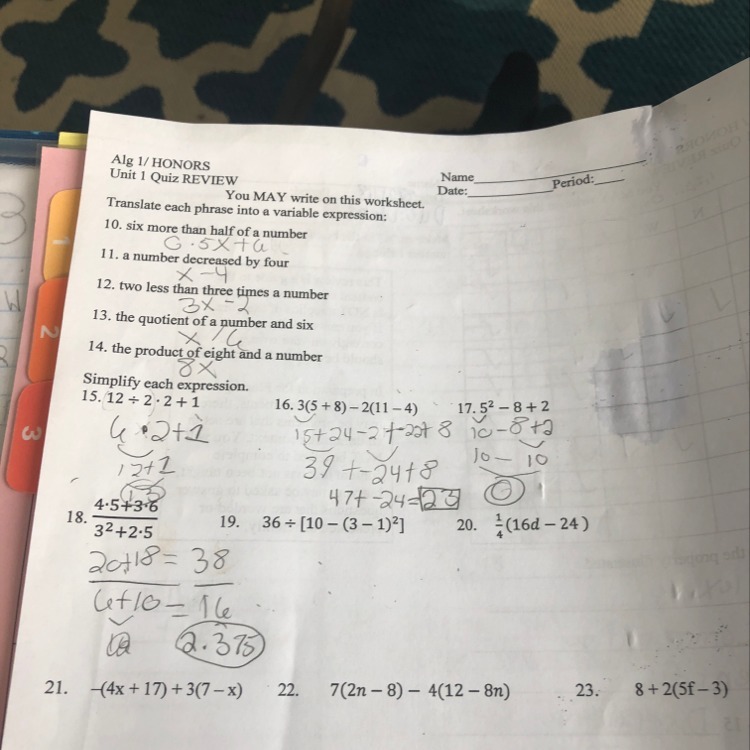 Alg 1/ HONORS
Unit 1 Quiz REVIEW
Name
Date: Period:
You MAY write on this worksheet.
Translate each phrase into a variable expression:
10. six more than half of a number
0.5x+6
11. a number decreased by four
x-4
12. two less than three times a number
3x-2
13. the quotient of a number and six
x/6
14. the product of eight and a number
8x
Simplify each expression.
15. 12 ÷ 2 · 2 + 1 16. 3(5 + 8) – 2(11 – 4) 17. 5² – 8 + 2
6·2+1 15+24-2+-22+8 10-8+2
12+1 39+-24+8 10-10
13 47+-24=23 0
18. 4·5+3·6
3²+2·5
19. 36 ÷ [10 – (3 – 1)²] 20. 1/4(16d – 24 )
20+18 = 38
6+10 = 16
2.375
21. –(4x + 17) + 3(7 – x) 22. 7(2n – 8) – 4(12 – 8n) 23. 8 + 2(5f – 3)
1
2
3